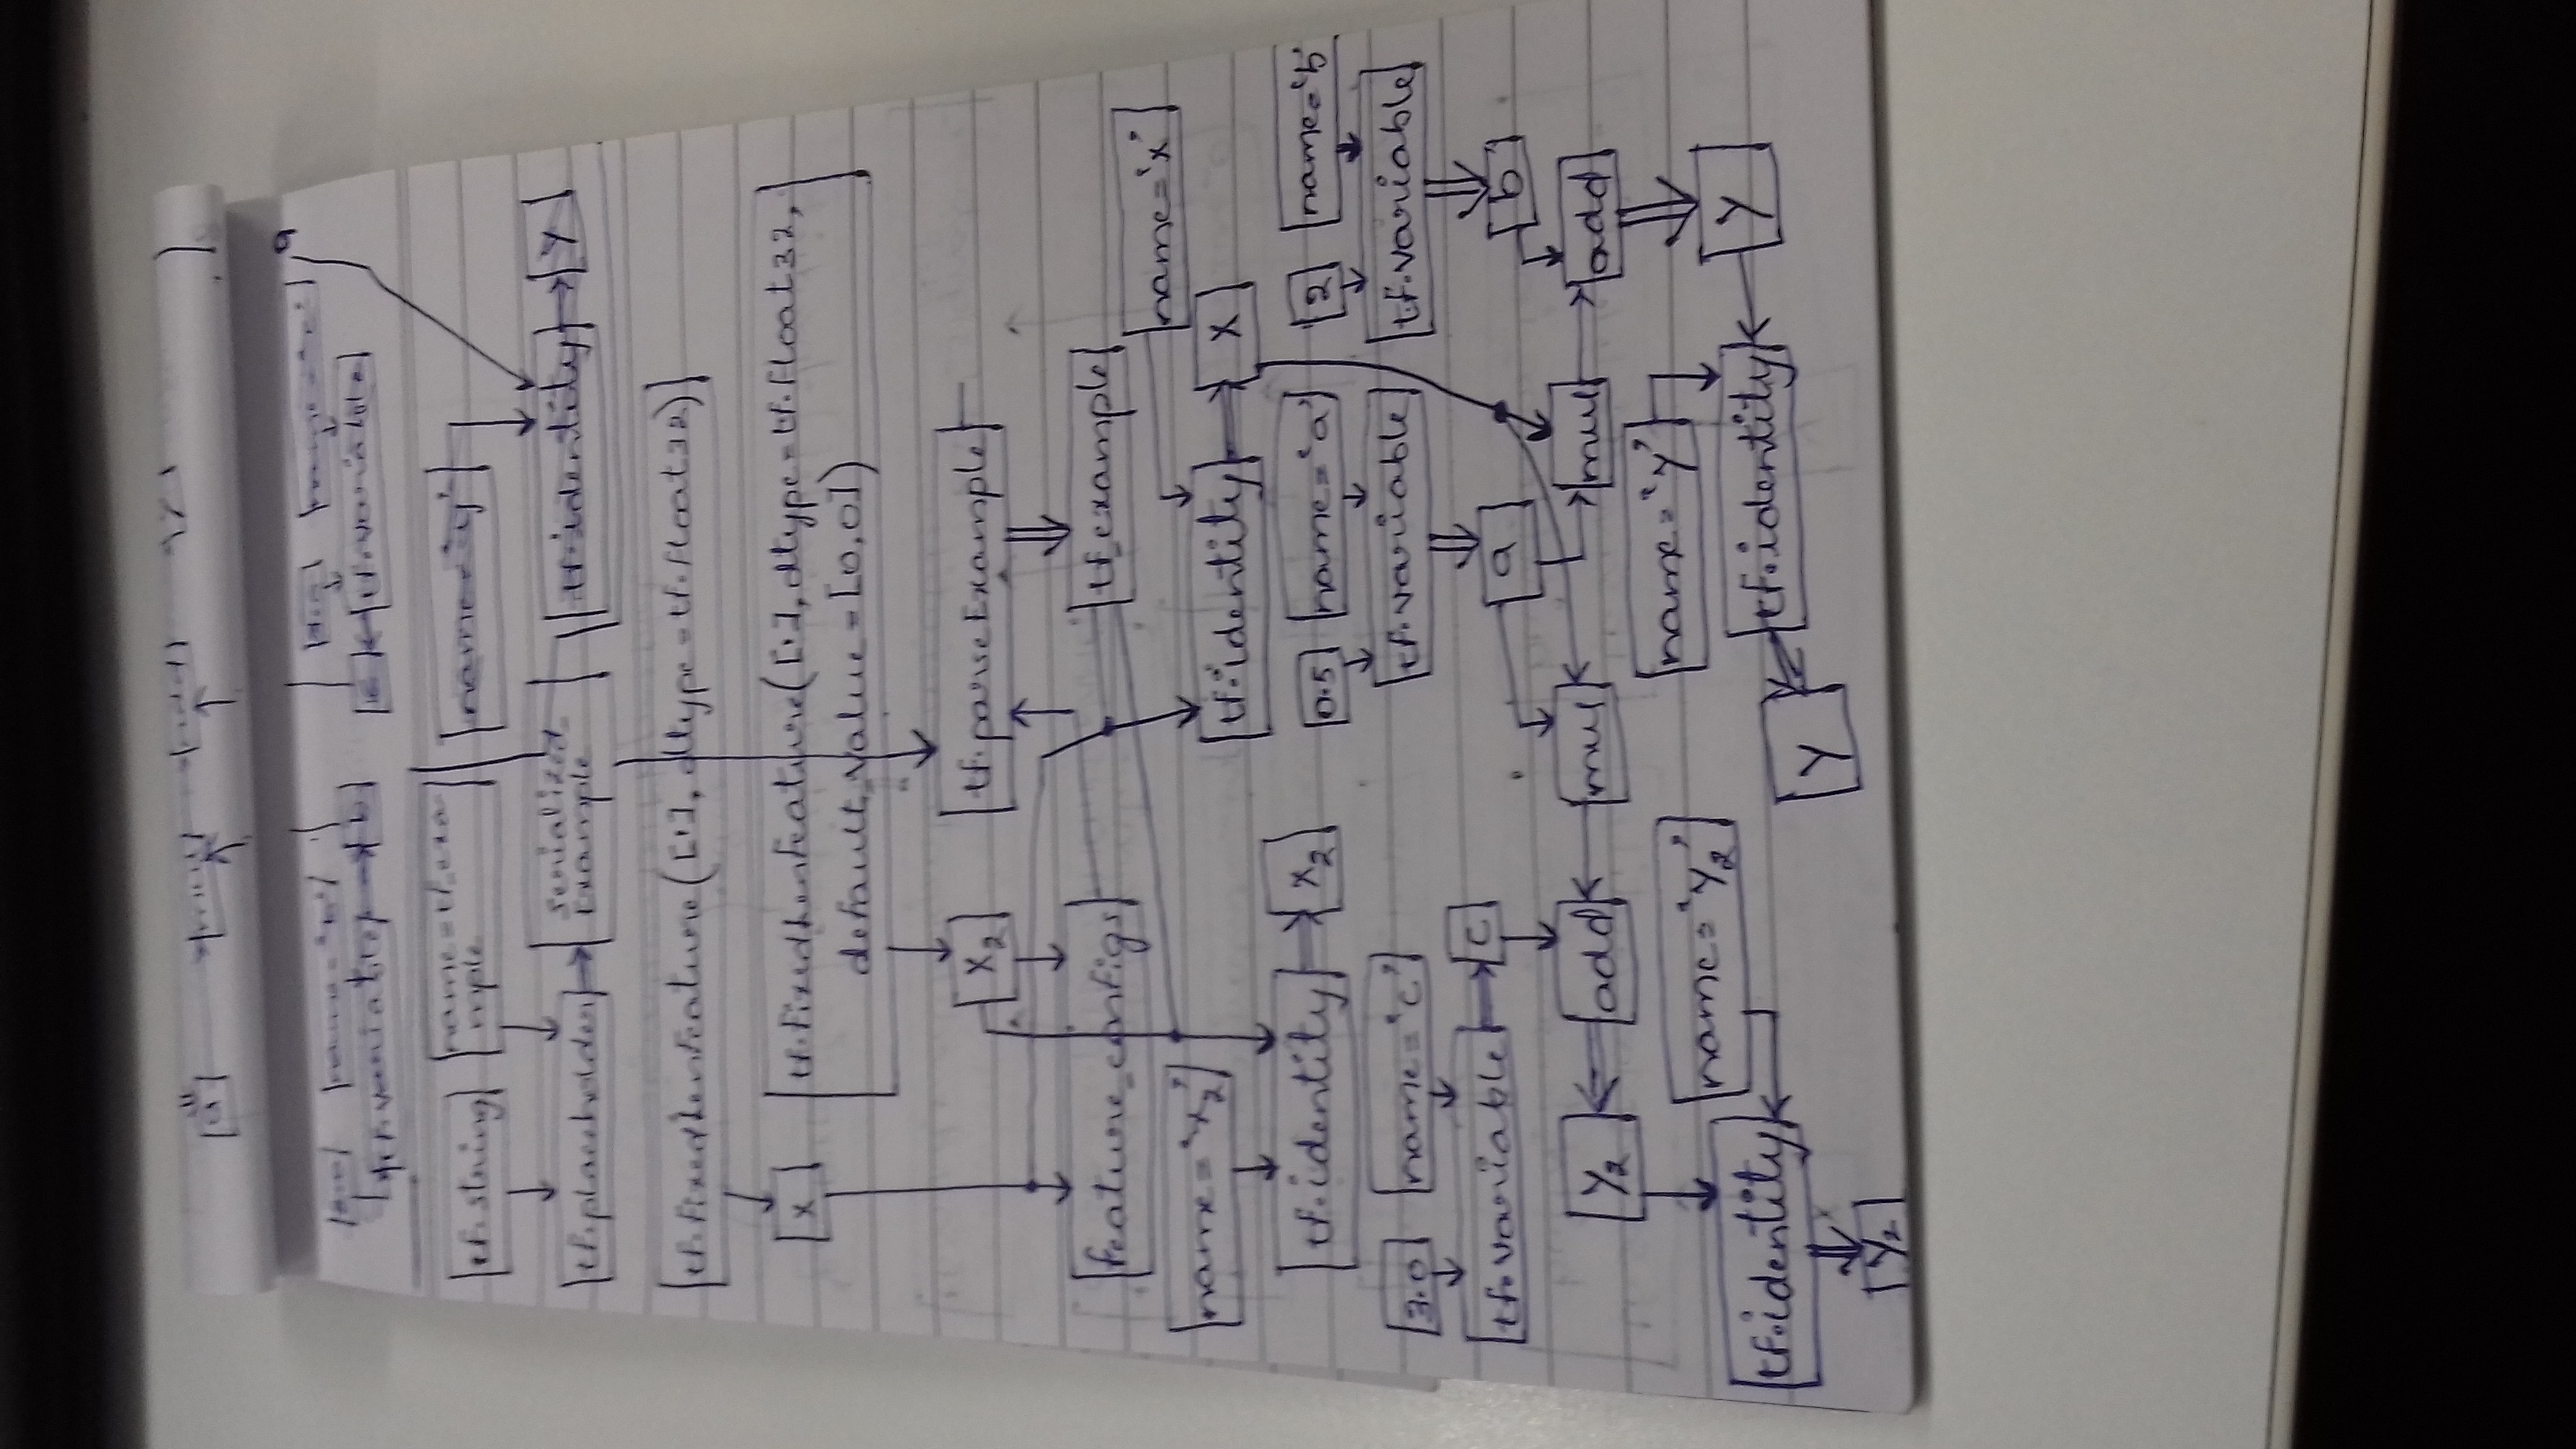 name='b'
name='c'
tf.variable
b
c
tf.variable
tf.string
name=tf_exa
mple
name='y'
tf.placeholder
serialized_
Example
tf.identity
y
tf.FixedLenFeature([1], dtype=tf.float32)
x
tf.FixedLenFeature([1], dtype=tf.float32,
default_value=[0,0])
x2
tf.parseExample
feature_configs
tf_example
name='x'
name='x2'
tf.identity
x
tf.identity
x2
0.5
name='a'
2
name='b'
3.0
name='c'
tf.variable
tf.variable
tf.variable
c
a
b
y2
add
mul
mul
add
name='y2'
name='y'
tf.identity
y
tf.identity
y
y2